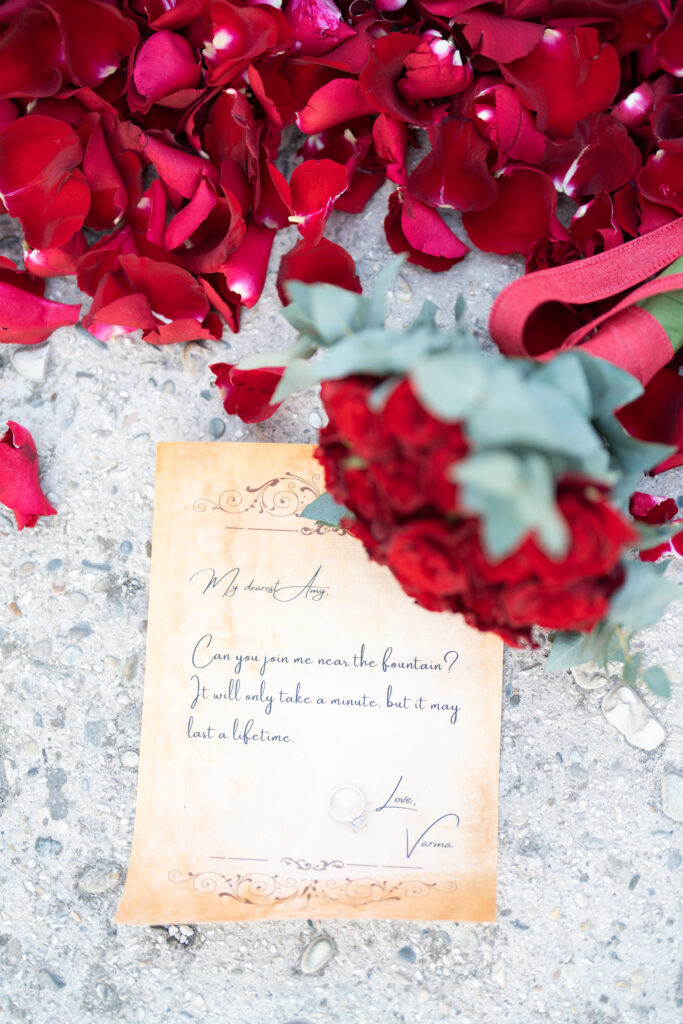 My dearest Amy,
Can you join me near the fountain?
It will only take a minute, but it may
last a lifetime.
Love,
Varma